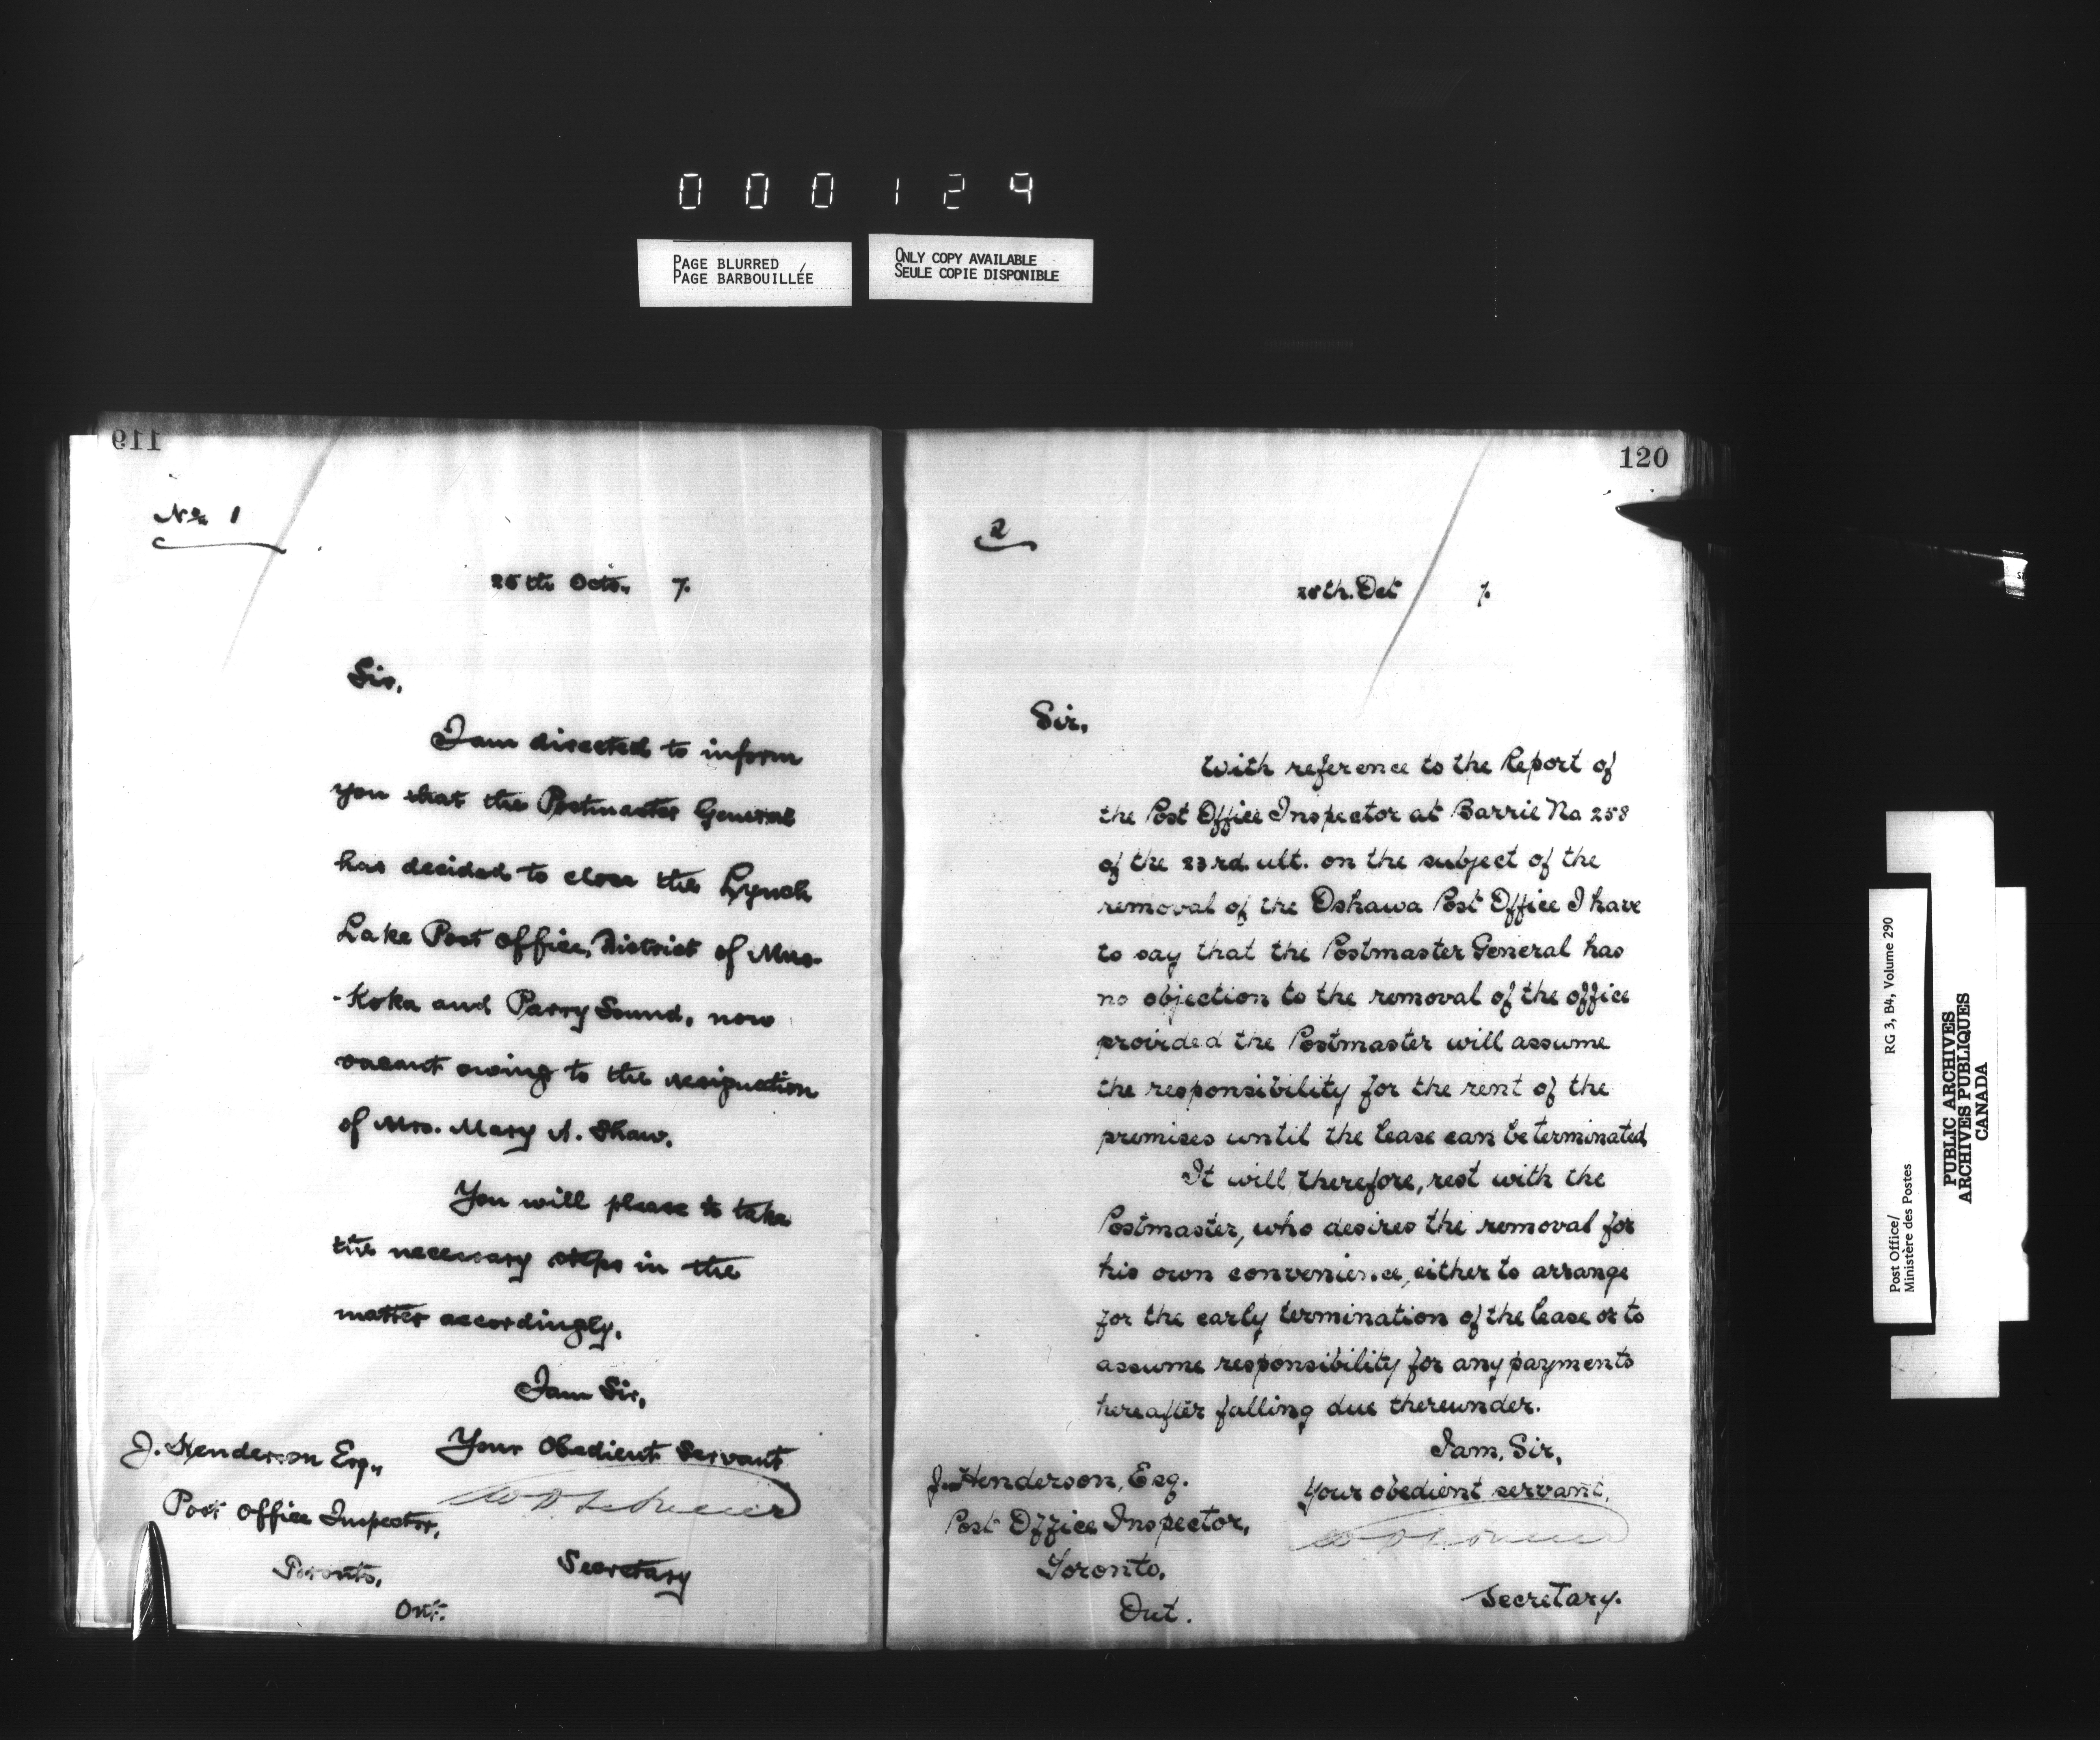 000129
PAGE BLURRED
PAGE BARBOUILLÉE
ONLY COPY AVAILABLE
SEULE COPIE DISPONIBLE
119
No 1
25th Octo. 7.
Sir,
I am directed to inform
you that the Postmaster General
has decided to close the Lynch
Lake Post Office, District of Mus-
-Koka and Parry Sound, now
vacant owing to the resignation
of Mrs. Mary A. Shaw.
You will please to take
the necessary steps in the
matter accordingly.
I am Sir,
Your Obedient Servant
J. Henderson Esq.,
Post Office Inspector,
Secretary
Toronto,
Ont.
120
2
25th. Oct 7.
Sir,
With reference to the Report of
the Post Office Inspector at Barrie No 258
of the 23rd. ult. on the subject of the
removal of the Oshawa Post Office I have
to say that the Postmaster General has
no objection to the removal of the office
provided the Postmaster will assume
the responsibility for the rent of the
premises until the lease can be terminated
It will, therefore, rest with the
Postmaster, who desires the removal for
his own convenience, either to arrange
for the early termination of the lease or to
assume responsibility for any payments
hereafter falling due thereunder.
I am, Sir,
Your obedient servant,
J. Henderson, Esq.
Post Office Inspector,
Toronto,
Ont.
Secretary.
Post Office/
Ministère des Postes
RG 3, B4, Volume 290
PUBLIC ARCHIVES
ARCHIVES PUBLIQUES
CANADA